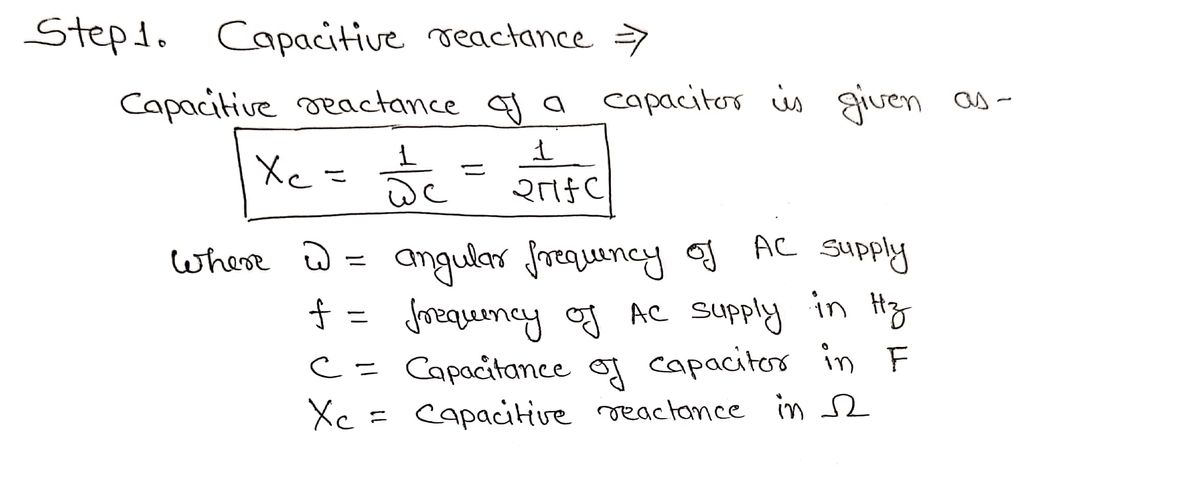 Step 1. Capacitive reactance ⇒
Capacitive reactance of a capacitor is given as -
Xc = 1/ωC = 1/2πfC
Where ω = angular frequency of AC supply
f = frequency of AC supply in Hz
C = Capacitance of capacitor in F
Xc = Capacitive reactance in Ω